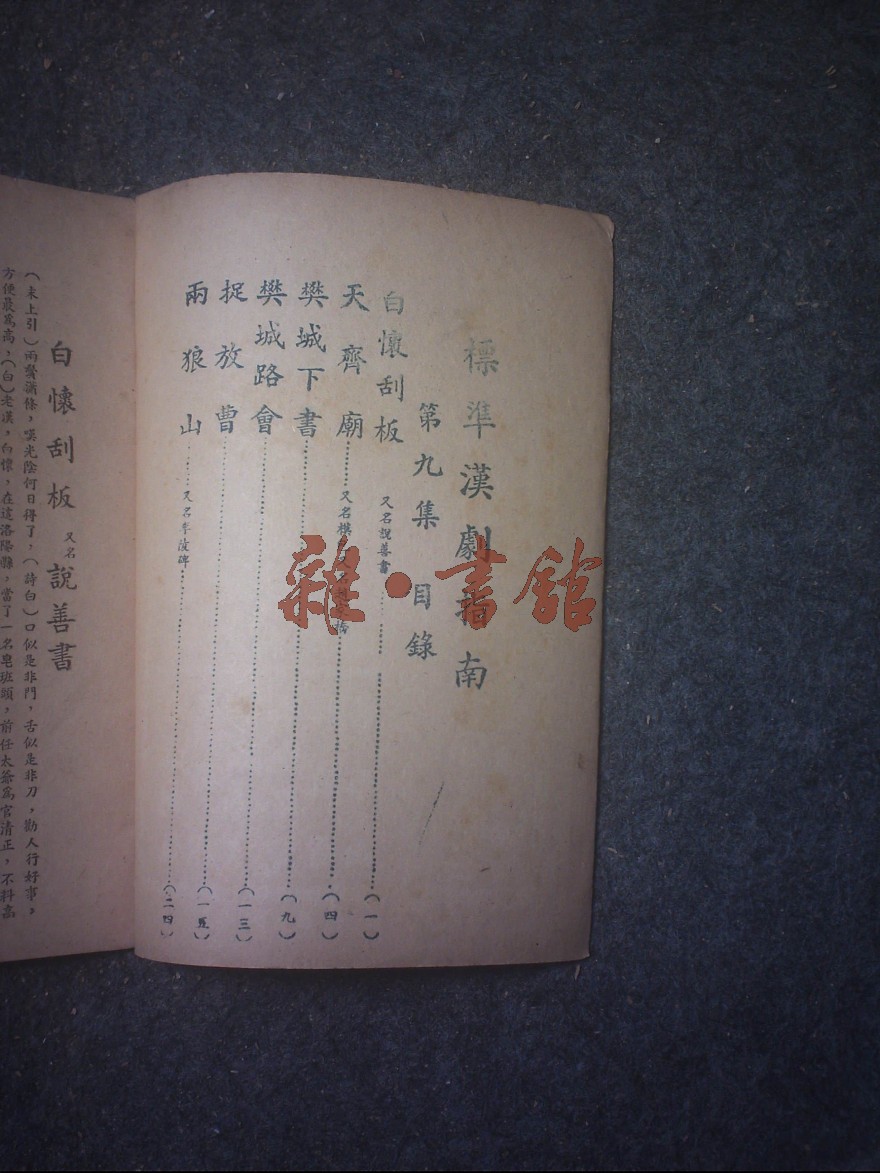 標準漢劇指南
第九集 目錄
白懷刮板 又名說善書……(一)
天齊廟……又名……橋……(四)
樊城下書……(九)
樊城路會……(一三)
捉放曹……(一五)
兩狼山……又名李陵碑……(二四)
白懷刮板 又名 說善書
(末上引)兩鬢蕭條,嘆光陰何日得了,(詩白)口似是非門,舌似是非刀,勸人行好事,
方便最爲高,(白)老漢,白懷,在這洛陽縣,當了一名皂班頭,前任太爺爲官淸正,不抖高
雜·書館